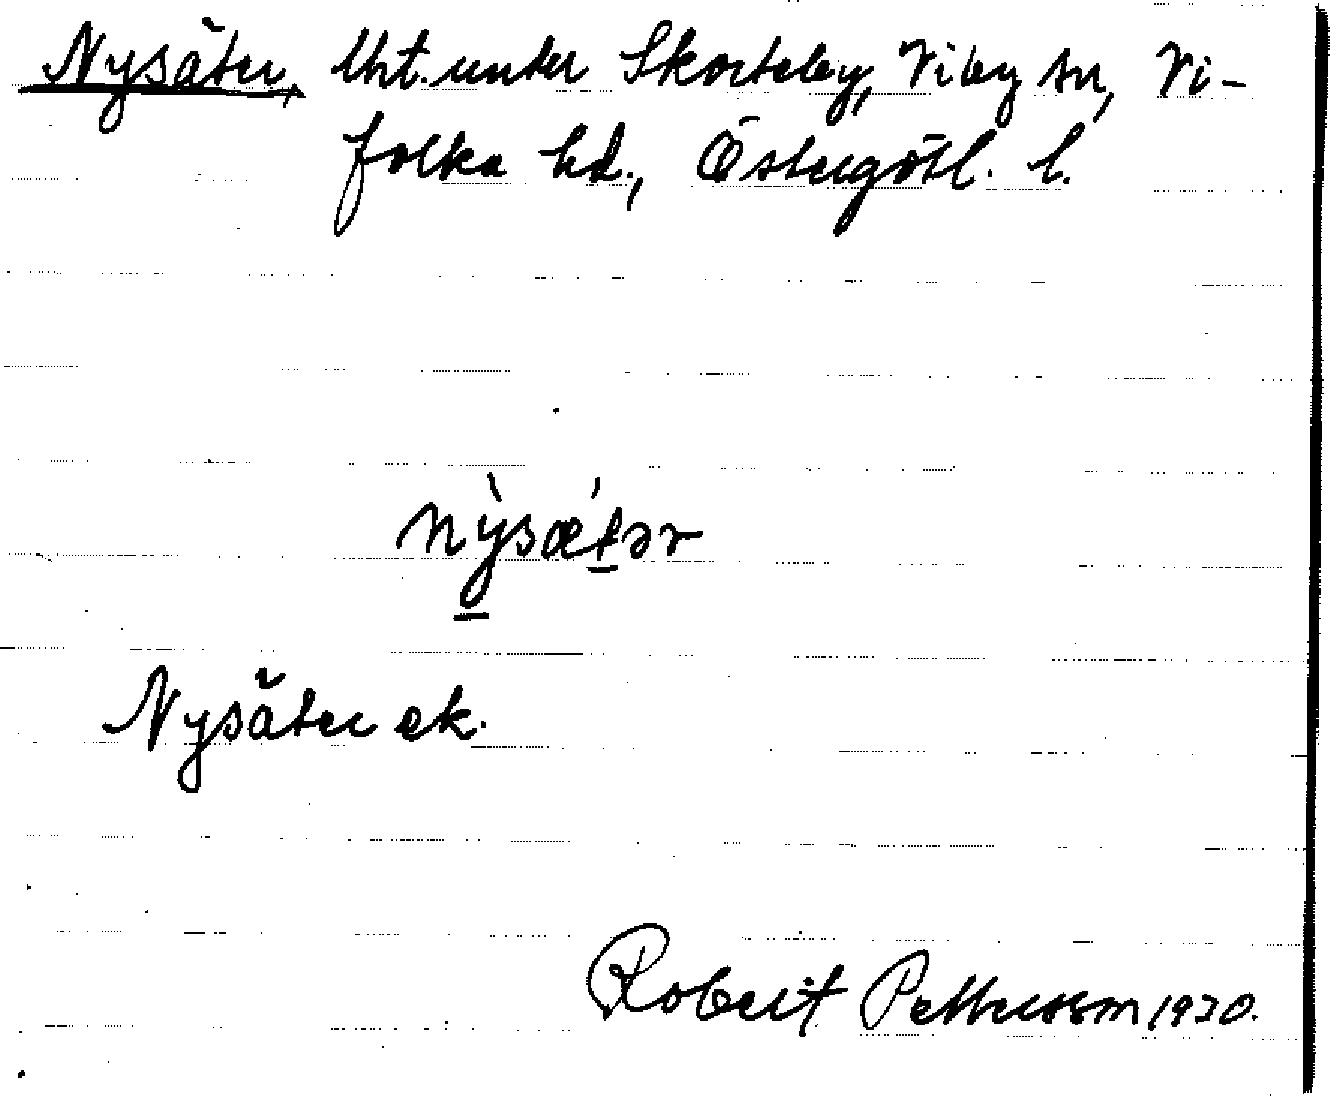 Nysäter, Uht. under Skorteby, Viby sn, Vi-
folka hd., Östergötl. l.
nỳsæ´tər
Nysäter ek.
Robert Pettersson 1930.